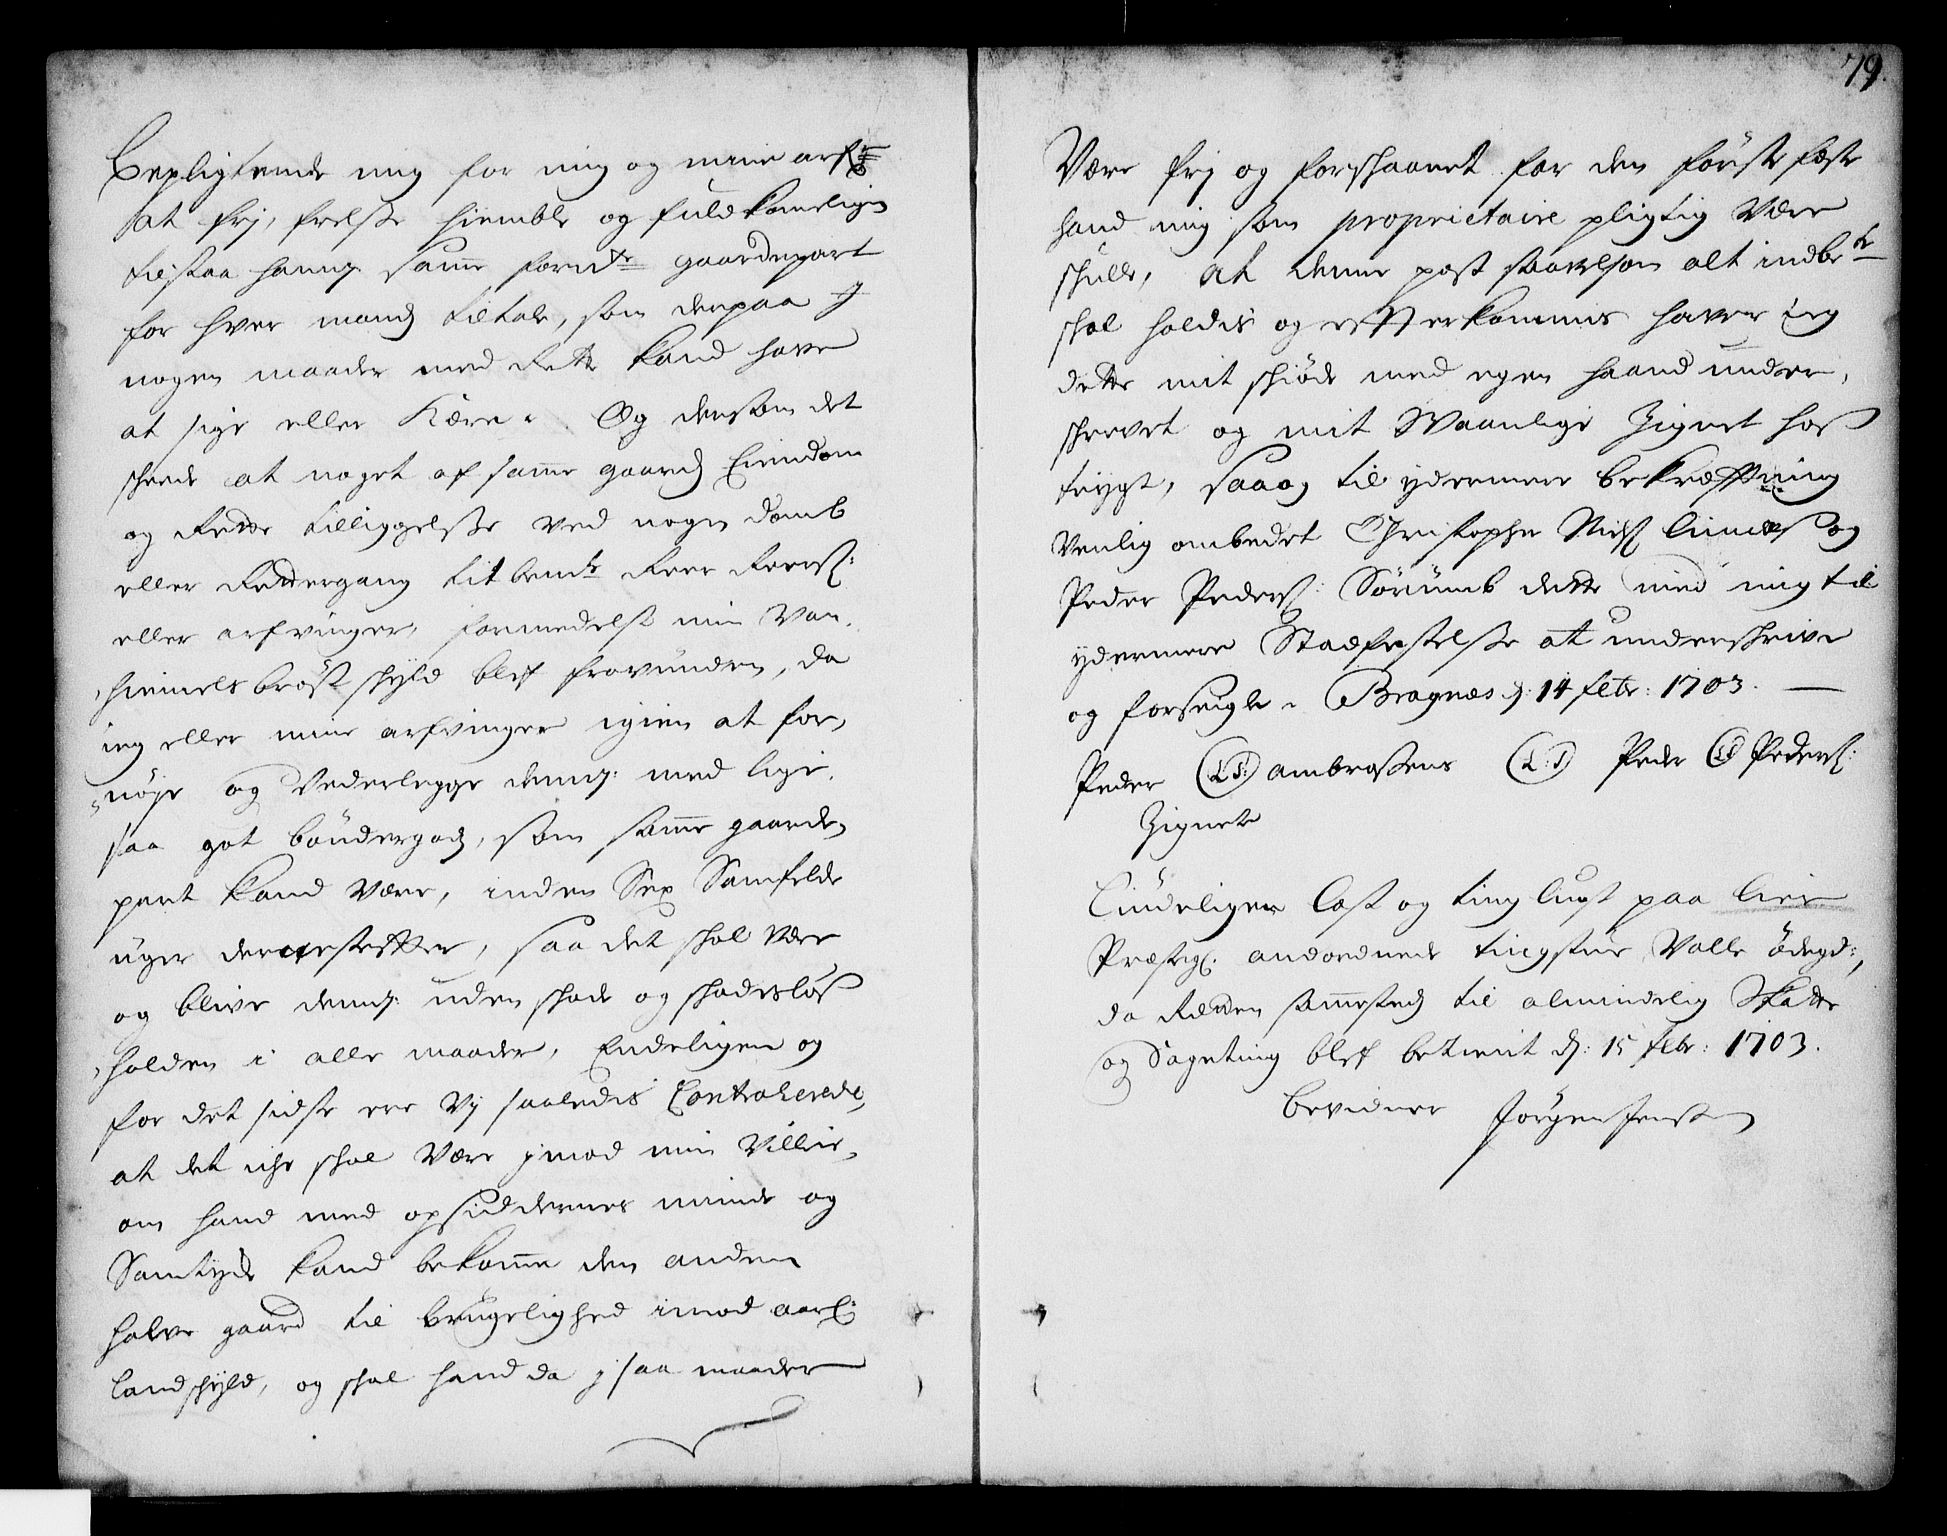 Bepligtende mig for mig og mine arf:
at frj, frelse hiemble og fuldkommeligen
tilstaa hannem samme fornte gaardepart
for hver mands tiltale, som derpaa j
nogen maader med Rette kand have
at sige eller Kære. Og dersom det
scheede at noget af samme gaards Eiendom
og Rette tilliggelsse ved nogen domb
eller Rettergang titbemte Peer Peers:
eller arfvinger, formedelst min Van,
hiemels bröst skyld blef fravunden, da
ieg eller mine arfvinger igien at for,
nöye og Vederlegge dennem med lige,
saa got böndergods, som samme gaarde,
part kand være, inden Sex Samfelde
uger dernesteffter, saa det skal være
og blive dennem uden skade og skadeslös
holden i alle maader, Endeligen og
for det sidste ere Vj saaledis Contraherede,
at det iche skal Være jmod min Villie,
om hand med opsiddernes minde og
Samtyche kand bekomme den anden
halve gaard til brugelighed imod aarl:
landskyld, og skal hand da j saa maader
79.
Være frj og forskaanet for den förste fæste
hand mig som proprietaire pligtig Være
skulle, At denne post saavelsom alt indbete
skal holdis og effterkommis haver ieg
dette mit skiöde med egen haand under,
skrevet og mit Waanlige Zignet hos
trygt, saa og til ydermere bekræfftning
Venlig ombedet Christopher Niels: og
Peder Peders: Sörumb dette med mig til
ydermere Stadfestelsse at underskrive
og forseigle. Bragnæs d: 14 febr: 1703.
Peder (L.S.) ambrosens (L.S) Peder (LS) Peders:
Zignete
Liudeligen læst og tinglyst paa Lier
Præstegl: anordnede tingstue Valle ödegd:,
da Retten sammesteds til almindelig Skatte
og Sageting blef betient d: 15 febr: 1703.
bevidner Jörgen Jensen